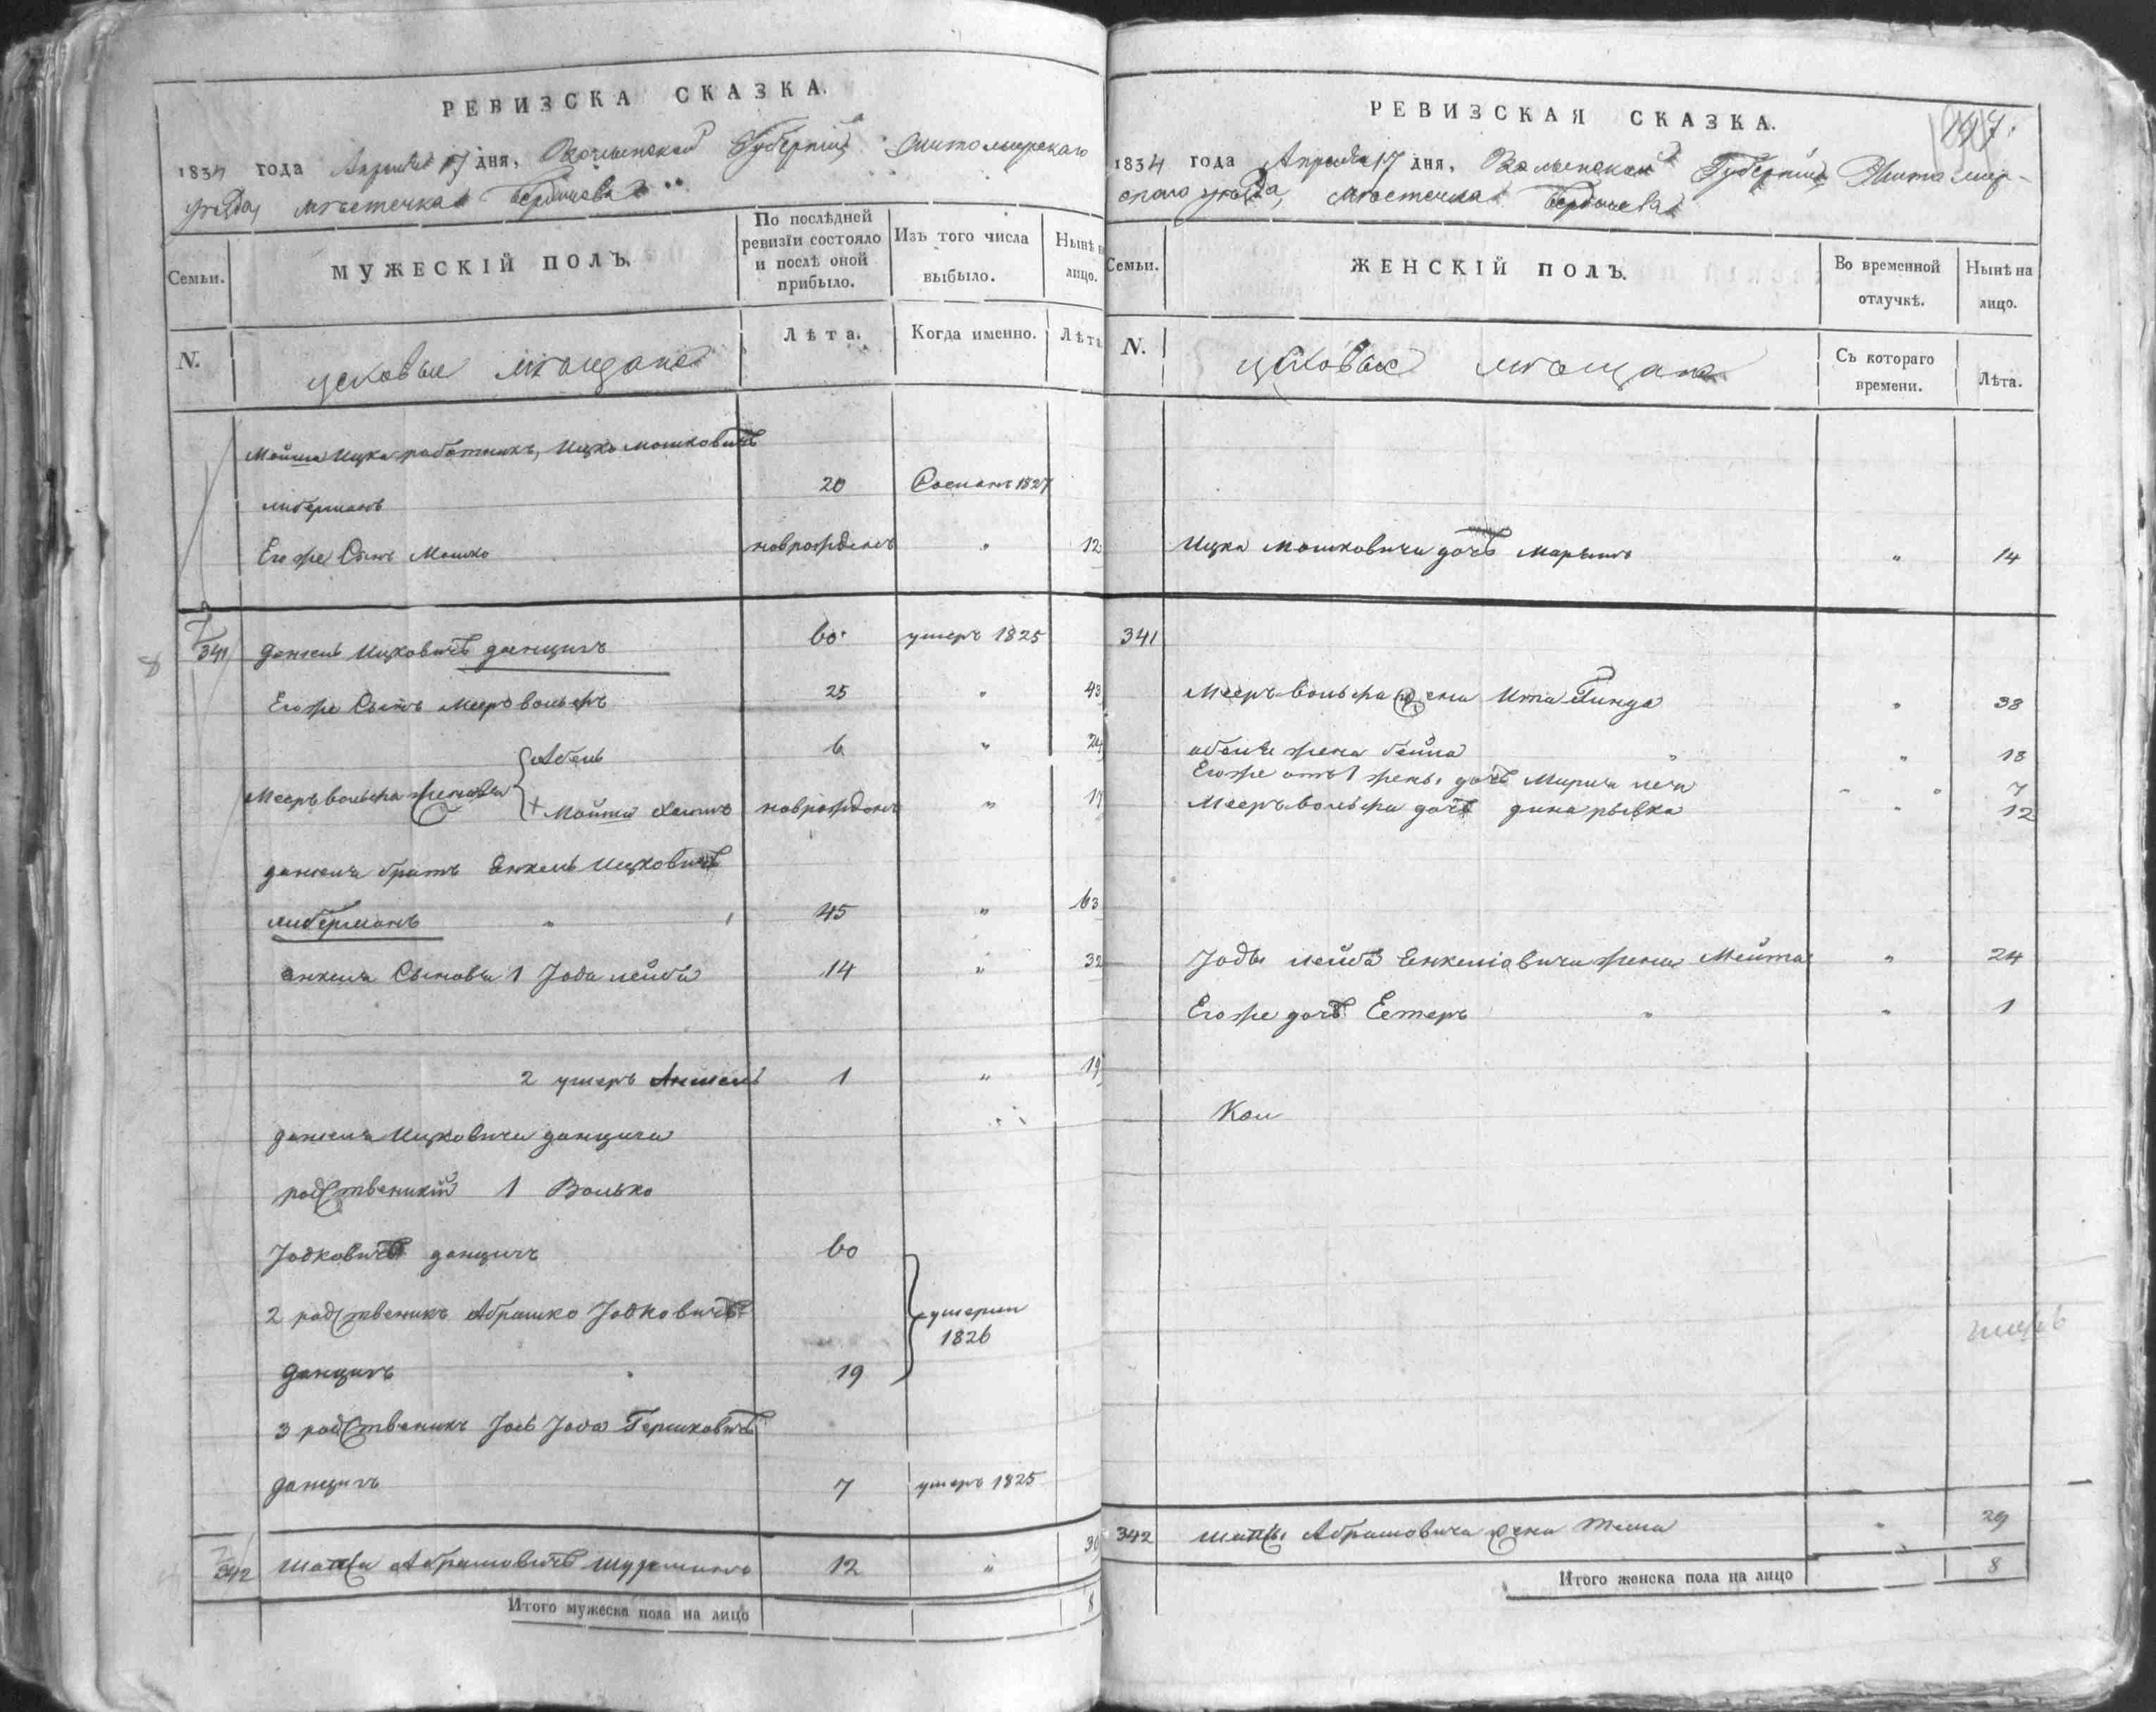 РЕВИЗСКА СКАЗКА.
1834 года Апреля 17 дня, Волынской Губернии Житомирскаго
уезда, местечка Бердичева
Семьи.
МУЖЕСКІЙ ПОЛЪ.
По послѣдней ревизіи состояло и послѣ оной прибыло.
Изъ того числа выбыло.
Нынѣ на лицо.
N.
мѣщане
Лѣта.
Когда именно.
Лѣта
Мойша Ицка работникъ, Ицко Мошковичъ
либерманъ 20 1827
Его же Сынъ Мошко новорожденъ " 12
341 Данель Ицковичъ данцигъ 60 умеръ 1825
Его же Сынъ Мееръ вольфъ 25 " 43
Абель 6 " 24
Мееръ вольфа сыновья
Мойша новорожденъ " 17
данеля братъ Енкель Ицковичъ
либерманъ " 45 " 63
Енкеля Сыновья 1 Іода лейба 14 " 32
2 умеръ Аншель 1 " 19
данеля Ицковича данцига
родственикій 1 Волько
Іодковичъ данцигъ 60
2 родственикъ Абрашко Іодковичъ
умерли
1826
данцигъ 19
3 родственикъ Іось Іода Гершковичъ
данцигъ 7 умеръ 1825
342 Шапса Абрамовичъ 12 " 30
Итого мужеска пола на лицо 8
РЕВИЗСКАЯ СКАЗКА.
1834 года Апреля 17 дня, Волынской Губернии Житомир-
скаго уезда, местечка Бердичева
Семьи.
ЖЕНСКІЙ ПОЛЪ.
Во временной отлучкѣ.
Нынѣ на лицо.
N.
мѣщане
Съ котораго времени.
Лѣта.
Ицка Мошковича дочь Марьямъ " 14
341
Мееръ вольфа жена Ита Гинда " 38
абеля жена бейла " " 18
Его же отъ 1 жены дочь Мирля лея " " 7
Мееръ вольфа дочь дина рывка " 12
Іоды лейба Енкеліовича жена Мейта " 24
Его же дочь Естеръ " " 1
342 Шапсы Абрамовича жена " 29
Итого женска пола на лицо 8